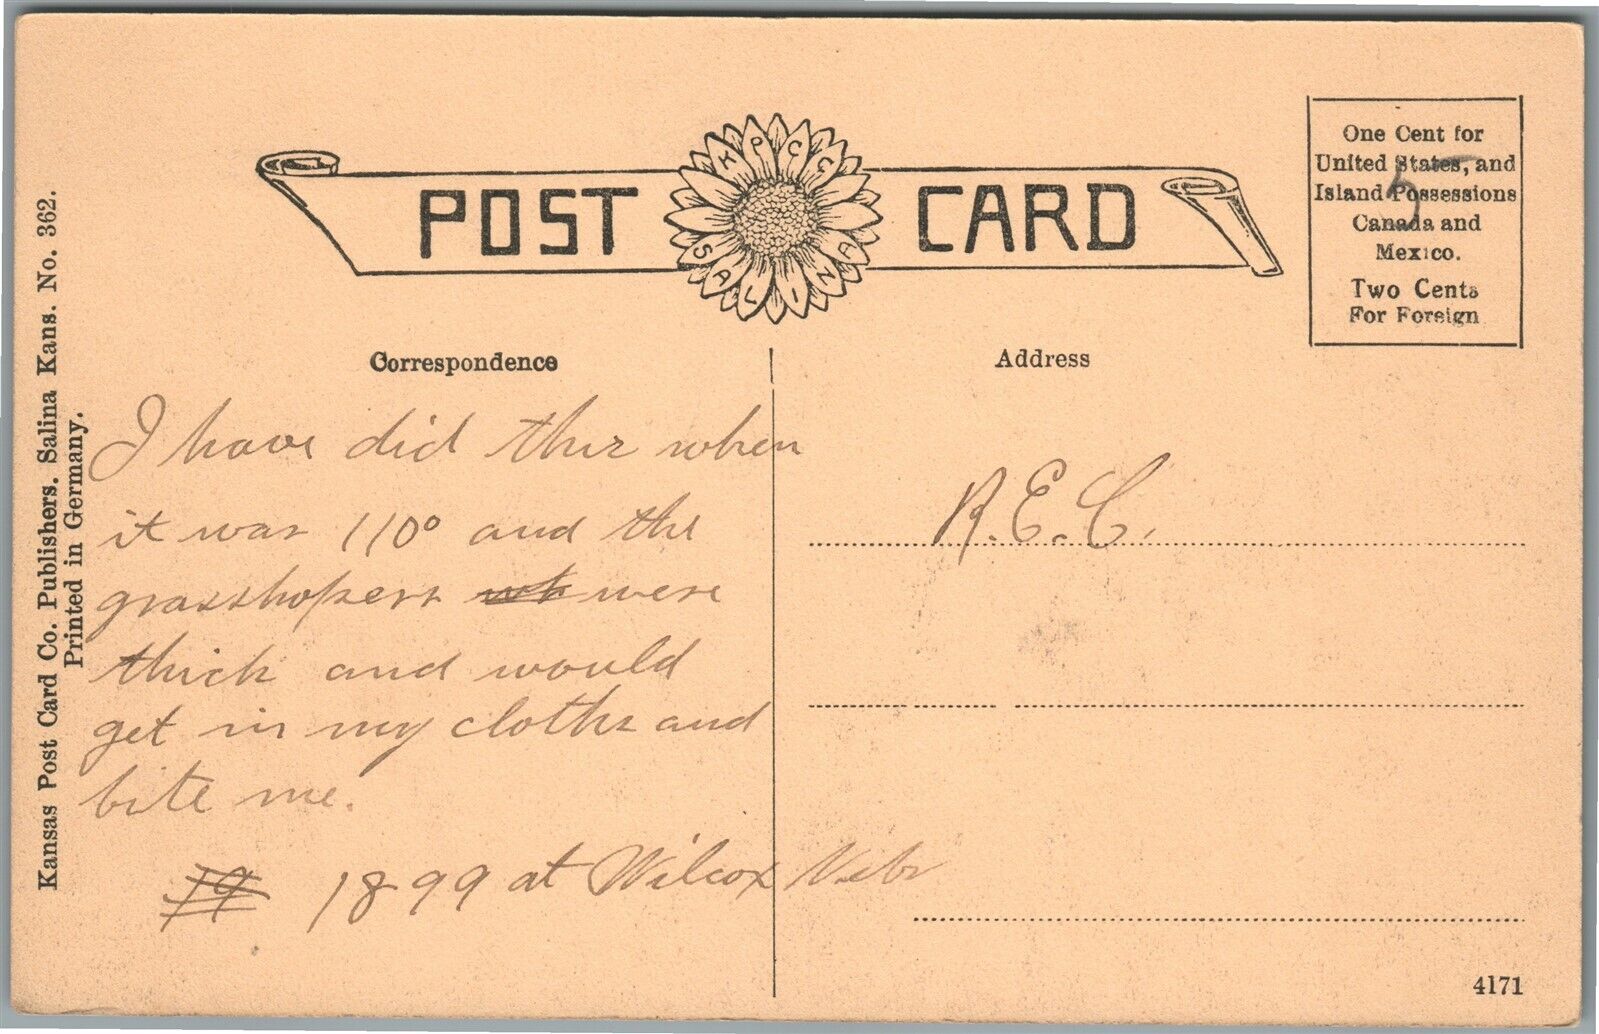 KPCC
SALINA
POST CARD
One Cent for
United States, and
Island Possessions
Canada and
Mexico.
Two Cents
For Foreign
Kansas Post Card Co. Publishers. Salina Kans. No. 362.
Printed in Germany.
Correspondence
I have did this when
it was 110° and the
grasshopers were
thick and would
get in my cloths and
bite me.
19 1899 at Wilcox Nebr
Address
R.E.C.
4171